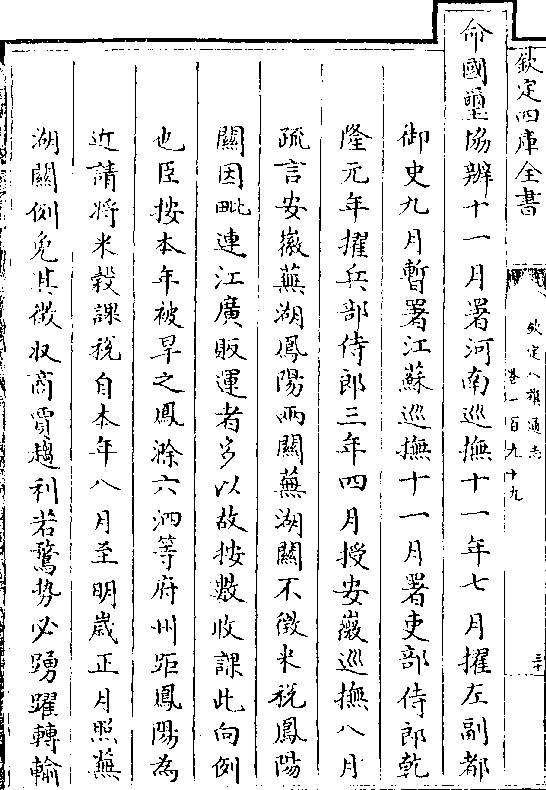 欽定四庫全書
欽定八旗通志
卷一百九十九
命國璽協辦十一月署河南巡撫十一年七月擢左副都
御史九月暫署江蘇巡撫十一月署吏部侍郎乾
隆元年擢兵部侍郎三年四月授安徽巡撫八月
疏言安徽蕪湖鳳陽兩關蕪湖關不徴米税鳳陽
關因毗連江廣販運者多以故按數收課此向例
也臣按本年被旱之鳳滁六泗等府州距鳳陽為
近請將米穀課税自本年八月至明嵗正月照蕪
湖關例免其徴收商賈趨利若鶩勢必踴躍轉輸